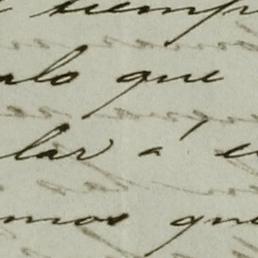 tiemp
alo que
lar á e
mos que